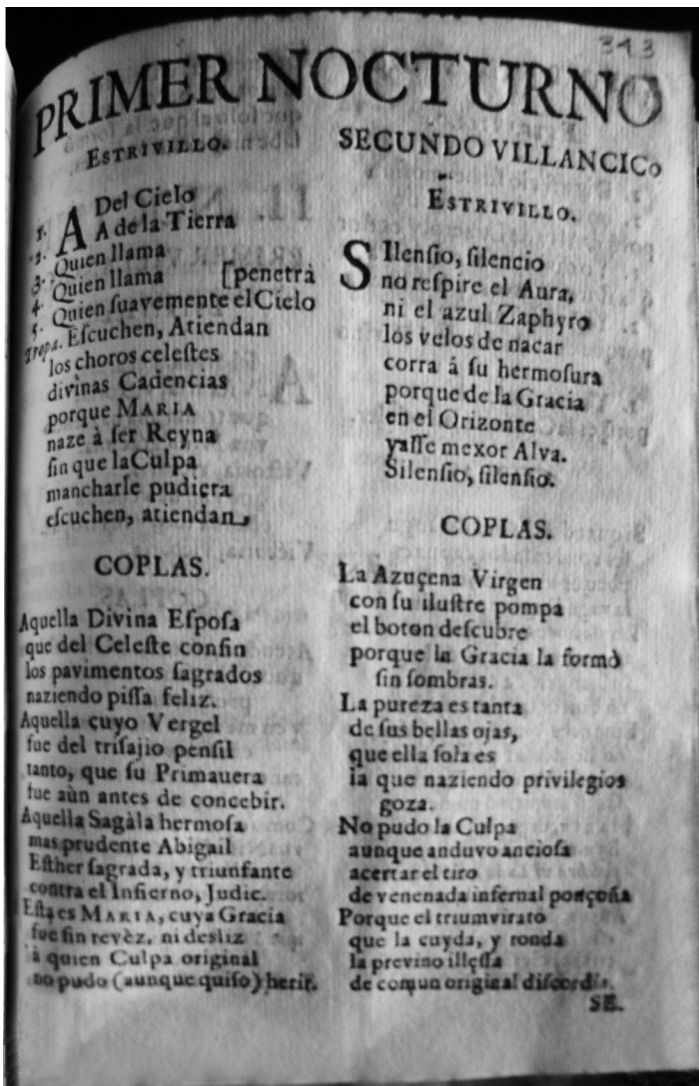 313
PRIMER NOCTURNO
ESTRIVILLO.
1. A Del Cielo
2. A de la Tierra
3. Quien llama
4. Quien llama [penetrà
5. Quien ſuavemente el Cielo
tropa. Eſcuchen, Atiendan
los choros celeſtes
divinas Cadencias
porque MARIA
naze à ſer Reyna
ſin que la Culpa
mancharle pudiera
eſcuchen, atiendan,
COPLAS.
Aquella Divina Eſpoſa
que del Celeſte confin
los pavimentos ſagrados
naziendo piſſa feliz.
Aquella cuyo Vergel
fue del triſajio penſil
tanto, que ſu Primauera
fue aùn antes de concebir.
Aquella Sagàla hermoſa
mas prudente Abigail
Eſther ſagrada, y triunfante
contra el Infierno, Judic.
Eſta es MARIA, cuya Gracia
fue ſin revèz, ni desliz
à quien Culpa original
no pudo (aunque quiſo) herir.
SECUNDO VILLANCICo
ESTRIVILLO.
SIlenſio, ſilencio
no reſpire el Aura,
ni el azul Zaphyro
los velos de nacar
corra á ſu hermoſura
porque de la Gracia
en el Orizonte
yaſſe mexor Alva.
Silenſio, ſilenſio.
COPLAS.
La Azuçena Virgen
con ſu iluſtre pompa
el boton deſcubre
porque la Gracia la formò
ſin ſombras.
La pureza es tanta
de ſus bellas ojas,
que ella ſola es
la que naziendo privilegios
goza.
No pudo la Culpa
aunque anduvo ancioſa
acertar el tiro
de venenada infernal ponçoña
Porque el triumvirato
que la cuyda, y ronda
la previno illeſſa
de comun original diſcordia.
SE.